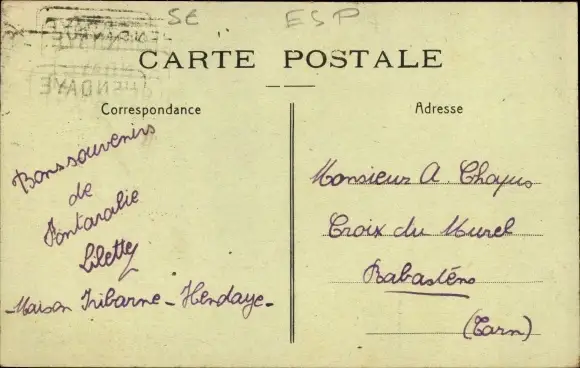 SE ESP
CARTE POSTALE
Correspondance
Adresse
Bons souvenirs
de
Fontarabie
Lilette
Maison Iribarne - Hendaye -
Monsieur A. Chayus
Croix du Murel
Rabasténs
(Tarn)